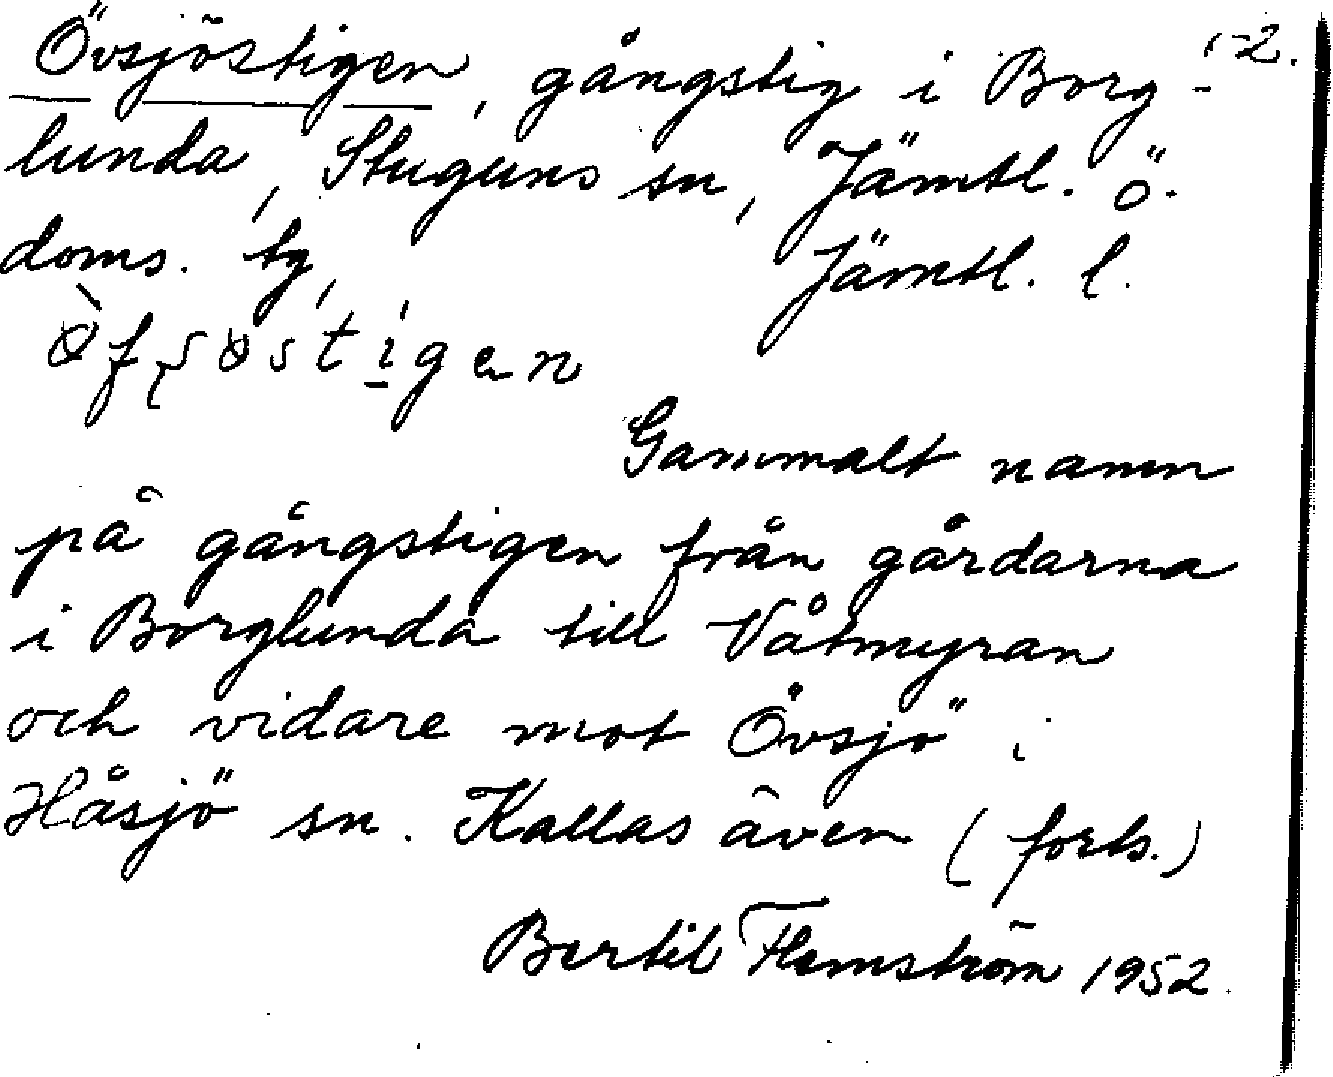 1-2.
Övsjöstigen, gångstig i Borg-
lunda, Stuguns sn, Jämtl. ö.
doms. tg, Jämtl. l.
Gammalt namn
på gångstigen från gårdarna
i Borglunda till Våtmyran
och vidare mot Övsjö i
Håsjö sn. Kallas även (forts.)
Bertil Flemström 1952